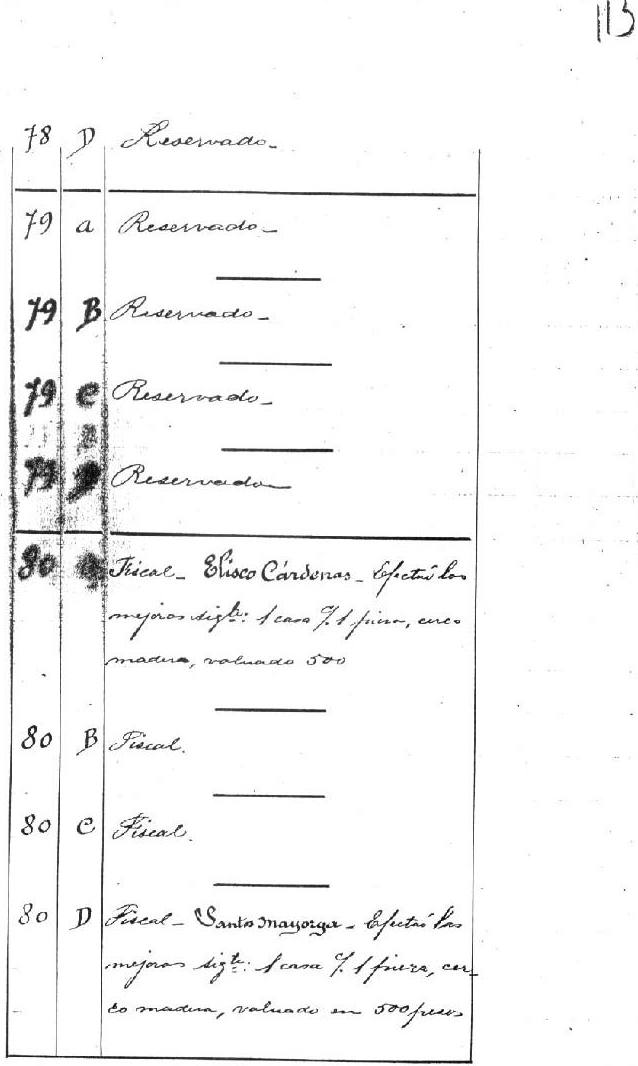 113
78 D Reservado_
79 a Reservado_
79 B Reservado_
79 C Reservado_
79 Reservado_
80 Fiscal_ Elisco Cárdenas_ Efectuó las
mejoras sigte: 1 casa c/. 1 pieza, cerco
madera, valuado 500
80 B Fiscal.
80 C Fiscal.
80 D Fiscal_ Santos Mayorga_ Efectuó las
mejoras sigte: 1 casa c/. 1 pieza, cer_
co madera, valuado en 500 pesos